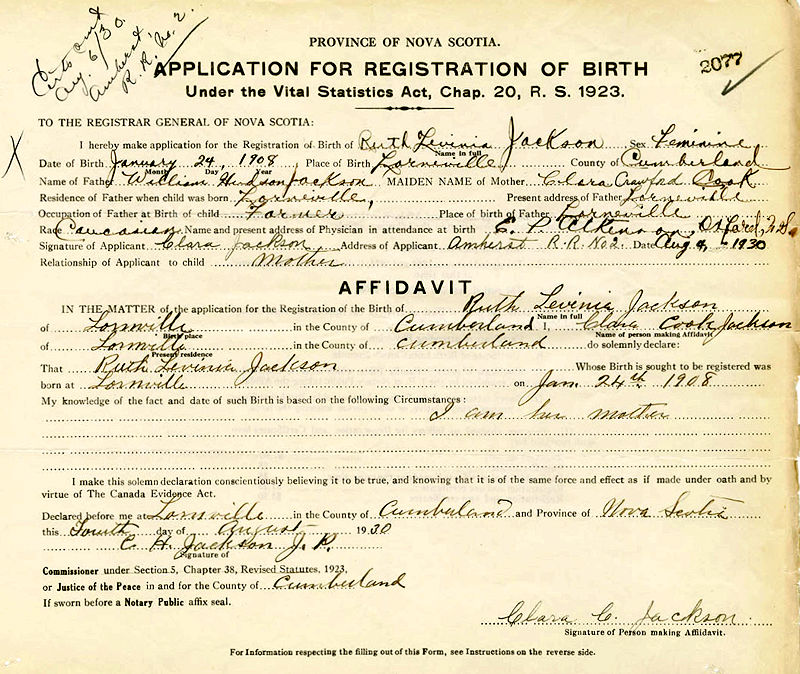 Certs out
Aug. 6/30.
Amherst,
R.R. No. 2.
2077
PROVINCE OF NOVA SCOTIA.
APPLICATION FOR REGISTRATION OF BIRTH
Under the Vital Statistics Act, Chap. 20, R. S. 1923.
TO THE REGISTRAR GENERAL OF NOVA SCOTIA:
X I hereby make application for the Registration of Birth of Ruth Levinia Jackson Sex Feminine
Name in full
Date of Birth January 24, 1908 Place of Birth Lorneville, County of Cumberland
Month Day Year
Name of Father William Hudson Jackson MAIDEN NAME of Mother Clara Crawford Cook
Residence of Father when child was born Lorneville, Present address of Father Lorneville
Occupation of Father at Birth of child Farmer Place of birth of Father Lorneville
Race Caucasian Name and present address of Physician in attendance at birth E. P. Atkinson, Oxford, N.S.
Signature of Applicant Clara Jackson Address of Applicant Amherst R.R. No 2. Date Aug 4, 1930
Relationship of Applicant to child Mother
AFFIDAVIT
IN THE MATTER of the application for the Registration of the Birth of Ruth Levinia Jackson
Name in full
of Lornville in the County of Cumberland I, Clara Cook Jackson
Birth place Name of person making Affidavit
of Lornville in the County of Cumberland do solemnly declare:
Present residence
That Ruth Levinia Jackson Whose Birth is sought to be registered was
born at Lornville on Jan. 24th 1908
My knowledge of the fact and date of such Birth is based on the following Circumstances:
I am her mother
I make this solemn declaration conscientiously believing it to be true, and knowing that it is of the same force and effect as if made under oath and by
virtue of The Canada Evidence Act.
Declared before me at Lornville in the County of Cumberland and Province of Nova Scotia
this Fourth day of August 1930
C. H. Jackson J. P.
Signature of
Commissioner under Section 5, Chapter 38, Revised Statutes, 1923,
or Justice of the Peace in and for the County of Cumberland
If sworn before a Notary Public affix seal.
Clara C. Jackson
Signature of Person making Affidavit.
For Information respecting the filling out of this Form, see Instructions on the reverse side.